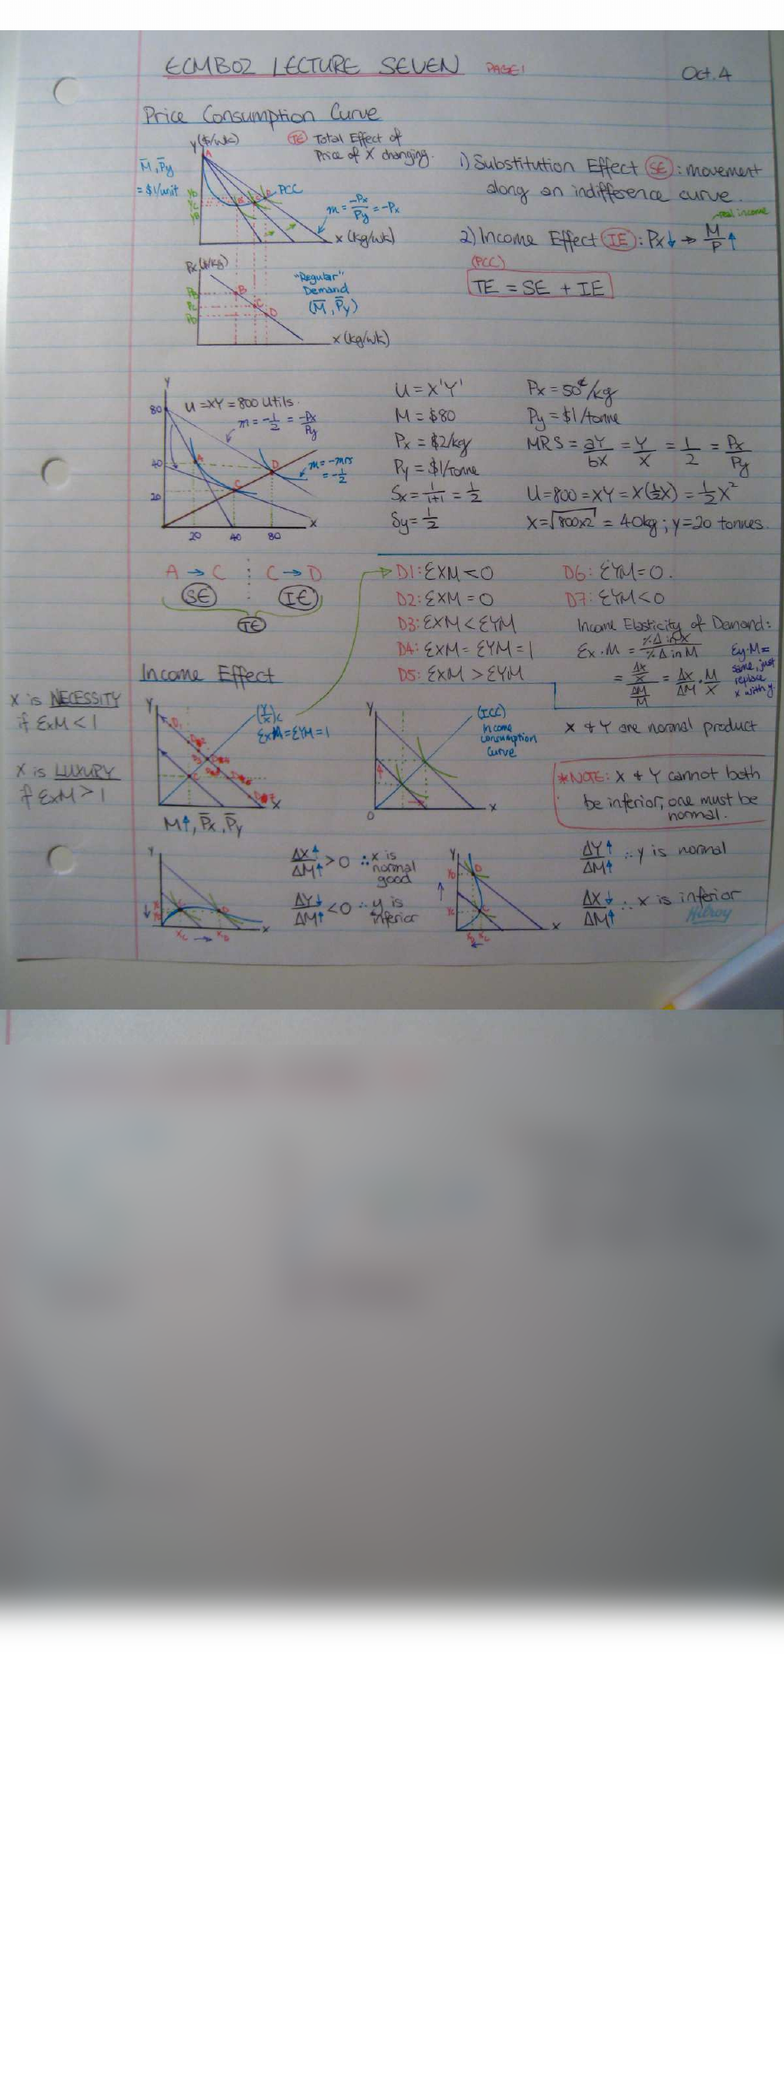 ECMB02 LECTURE SEVEN PAGE 1
Oct. 4
Price Consumption Curve
Y($/wk)
TE Total Effect of
Price of X changing.
M̄, P̄y
= $1/unit
A
PCC
m = -Px/Py = -Px
X (kg/wk)
1) Substitution Effect (SE): movement
along an indifference curve.
real income
2) Income Effect (IE): Px↓ → M/P ↑
(PCC)
TE = SE + IE
Px($/kg)
"Regular"
Demand
(M̄, P̄y)
B
C
D
X (kg/wk)
Y
80
U = XY = 800 Utils.
m = -1/2 = -Px/Py
40
A
D
m = -mrs
= -1/2
20
C
X
20 40 80
U = X'Y'
M = $80
Px = $2/kg
Py = $1/tonne
Sx = 1/1+1 = 1/2
Sy = 1/2
Px = 50¢/kg
Py = $1/tonne
MRS = ay/bx = Y/X = 1/2 = Px/Py
U = 800 = XY = X(½X) = ½X²
X = √800x2 = 40kg; y = 20 tonnes.
A → C C → D
SE IE
TE
D1: ƐXM < 0
D2: ƐXM = 0
D3: ƐXM < ƐYM
D4: ƐXM = ƐYM = 1
D5: ƐXM > ƐYM
D6: ƐYM = 0.
D7: ƐYM < 0
Income Elasticity of Demand:
Ɛx.M = %Δ in X / %Δ in M
= ΔX/X / ΔM/M = ΔX/ΔM . M/X
Ɛy.M =
same, just
replace
x with y.
Income Effect
X is NECESSITY
if ƐXM < 1
X is LUXURY
if ƐXM > 1
Y
ƐXM = ƐYM = 1
X
M↑, P̄x, P̄y
Y
(ICC)
Income
Consumption
Curve
0
X
X & Y are normal product
*NOTE: X & Y cannot both
be inferior; one must be
normal.
Y
X
Xc → XD
ΔX↑/ΔM↑ > 0 ∴ x is
normal
good
ΔY↓/ΔM↑ < 0 ∴ y is
inferior
Y
D
C
X
ΔY↑/ΔM↑ ∴ y is normal
ΔX↓/ΔM↑ ∴ x is inferior
Hilroy